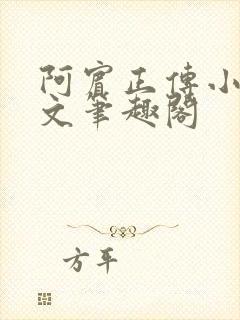 阿賓正傳小
文筆趣閣
方平